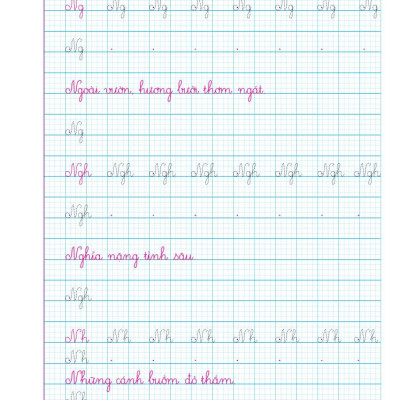 Ng Ng Ng Ng Ng Ng Ng Ng
Ng
Ngoài vườn, hương bưởi thơm ngát.
Ng
Ngh Ngh Ngh Ngh Ngh Ngh Ngh Ngh
Ngh
Nghĩa nặng tình sâu.
Ngh
Nh Nh Nh Nh Nh Nh Nh Nh
Nh
Những cánh bướm đỏ thắm.
Nh